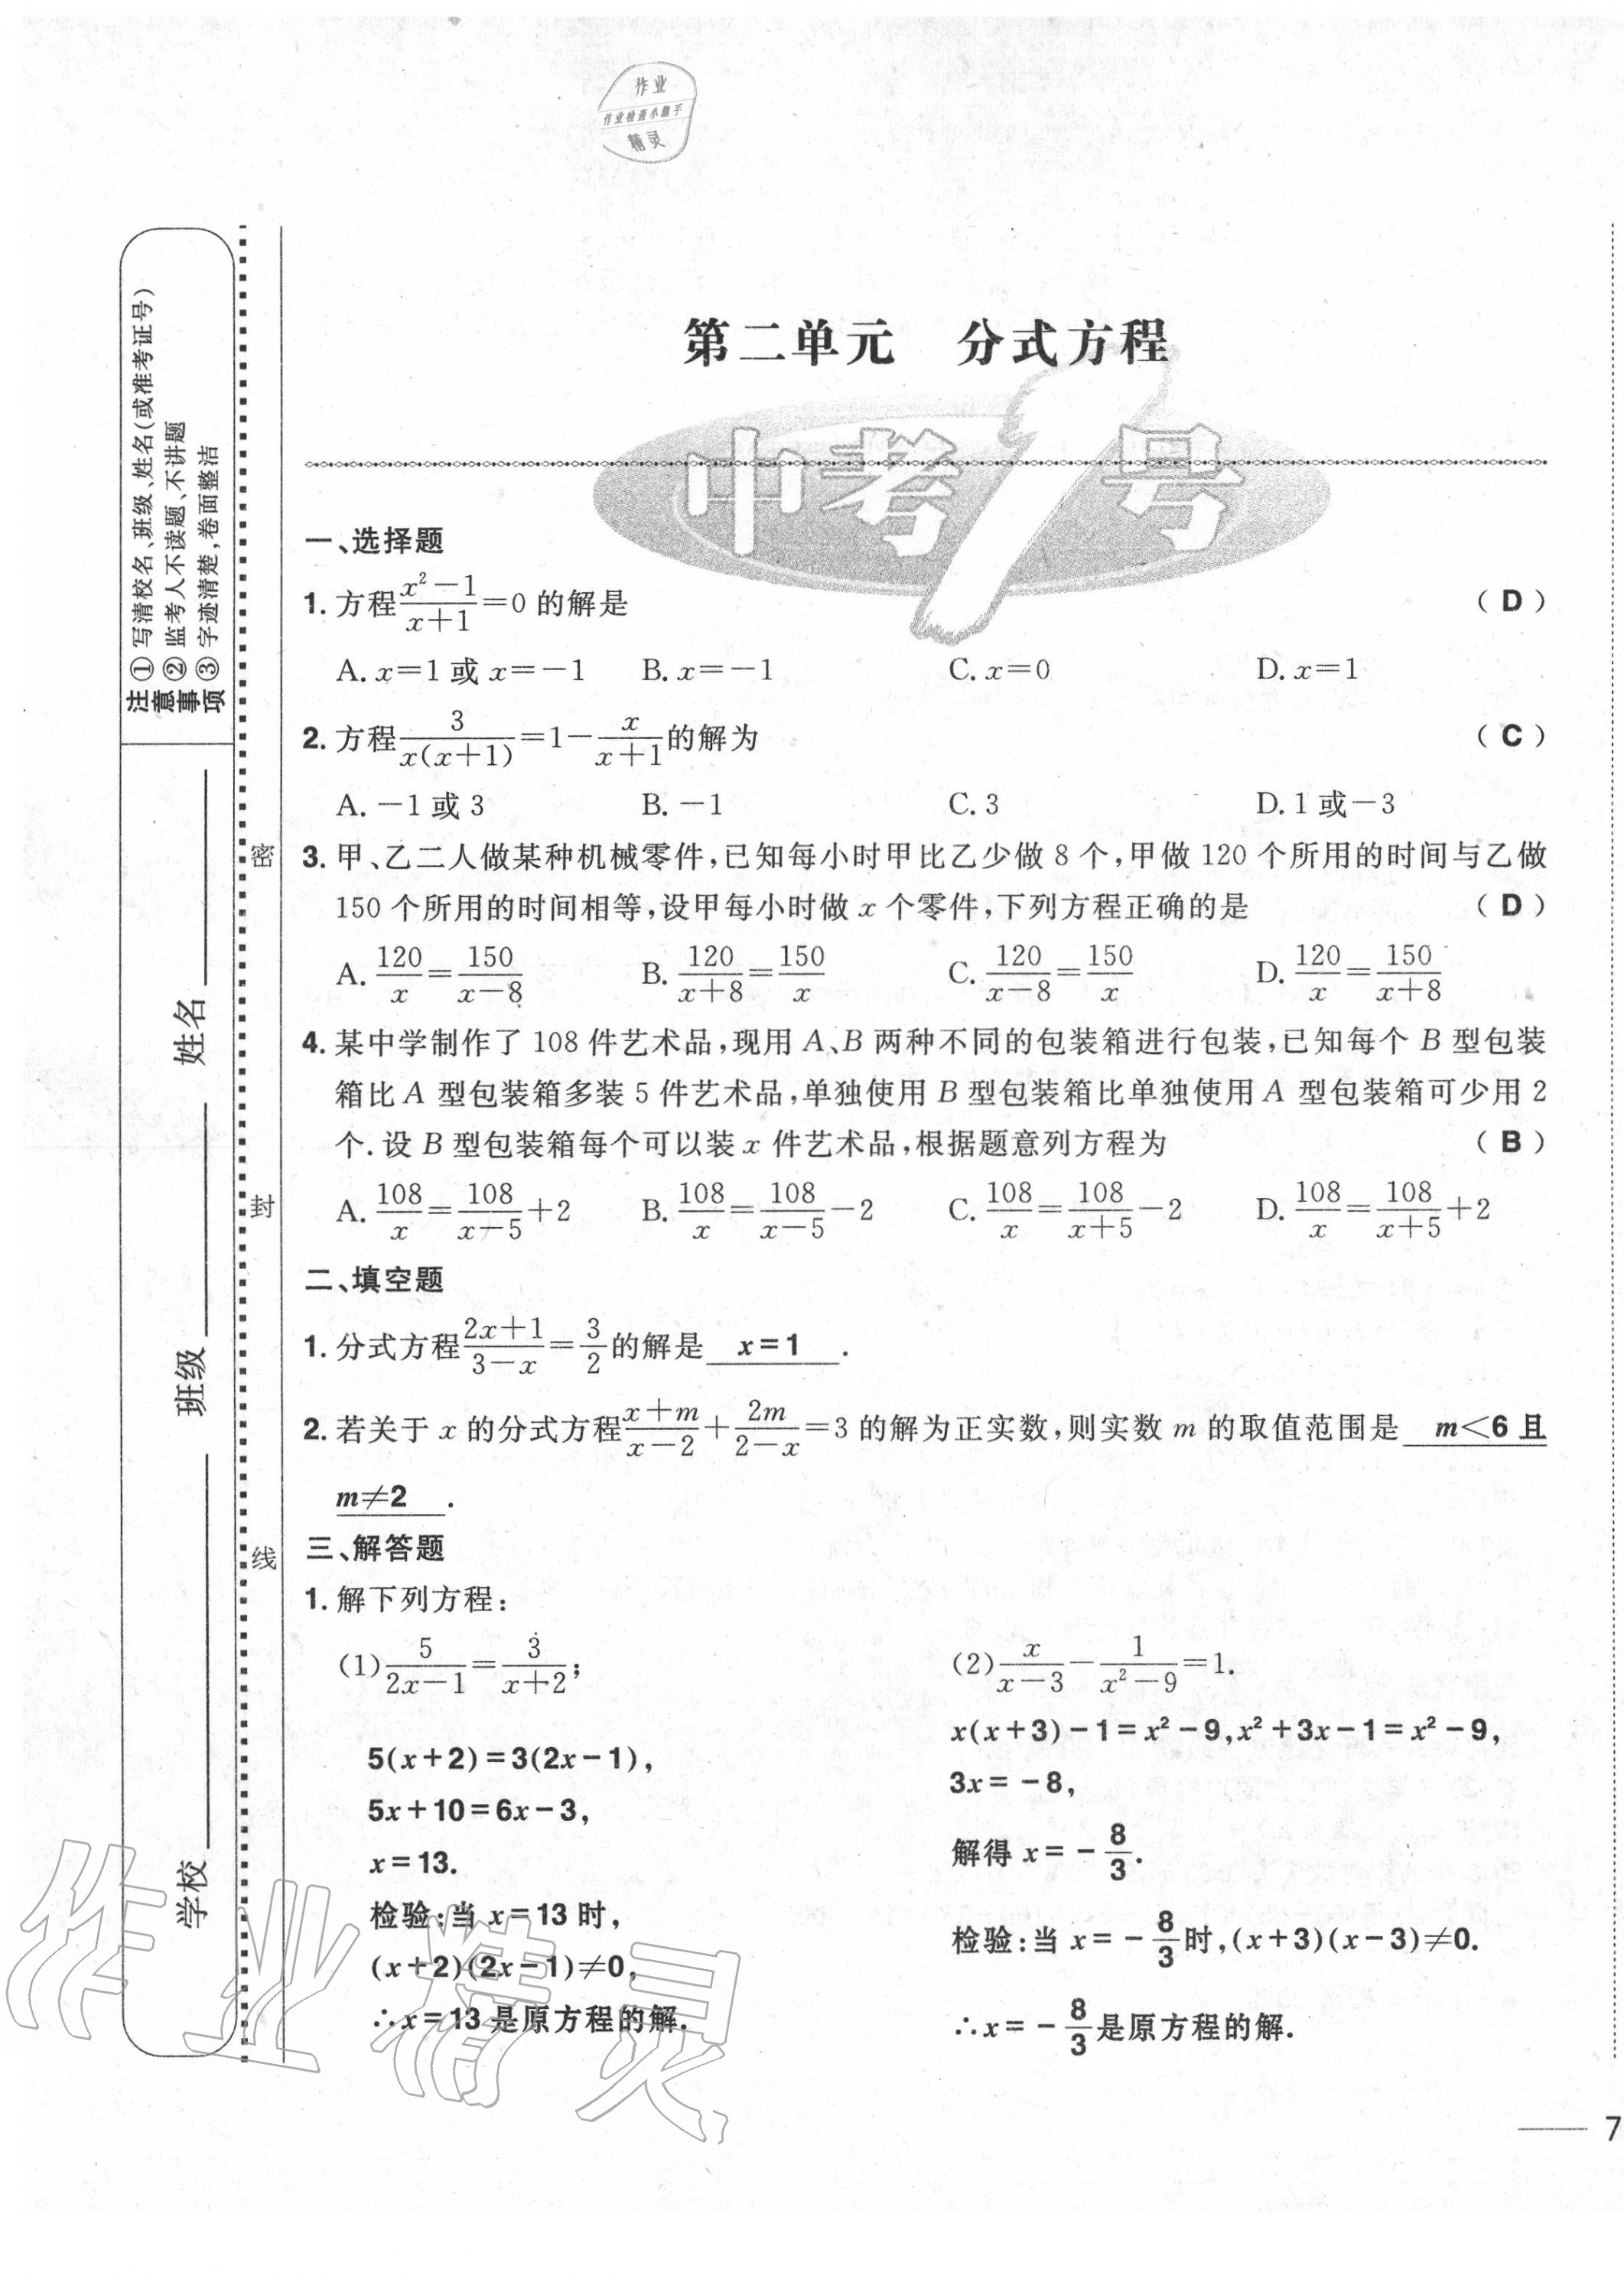 作业
作业检查小助手
精灵
注意事项
① 写清校名、班级、姓名(或准考证号)
② 监考人不读题、不讲题
③ 字迹清楚,卷面整洁
学校 班级 姓名
密
封
线
第二单元 分式方程
中考1号
一、选择题
1. 方程(x²-1)/(x+1)=0 的解是 ( D )
A. x=1 或 x=-1 B. x=-1 C. x=0 D. x=1
2. 方程3/(x(x+1))=1-x/(x+1)的解为 ( C )
A. -1 或 3 B. -1 C. 3 D. 1 或-3
3. 甲、乙二人做某种机械零件,已知每小时甲比乙少做 8 个,甲做 120 个所用的时间与乙做
150 个所用的时间相等,设甲每小时做 x 个零件,下列方程正确的是 ( D )
A. 120/x=150/(x-8) B. 120/(x+8)=150/x C. 120/(x-8)=150/x D. 120/x=150/(x+8)
4. 某中学制作了 108 件艺术品,现用 A、B 两种不同的包装箱进行包装,已知每个 B 型包装
箱比 A 型包装箱多装 5 件艺术品,单独使用 B 型包装箱比单独使用 A 型包装箱可少用 2
个. 设 B 型包装箱每个可以装 x 件艺术品,根据题意列方程为 ( B )
A. 108/x=108/(x-5)+2 B. 108/x=108/(x-5)-2 C. 108/x=108/(x+5)-2 D. 108/x=108/(x+5)+2
二、填空题
1. 分式方程(2x+1)/(3-x)=3/2的解是 x=1 .
2. 若关于 x 的分式方程(x+m)/(x-2)+2m/(2-x)=3 的解为正实数,则实数 m 的取值范围是 m<6 且
m≠2 .
三、解答题
1. 解下列方程:
(1)5/(2x-1)=3/(x+2);
5(x+2)=3(2x-1),
5x+10=6x-3,
x=13.
检验:当 x=13 时,
(x+2)(2x-1)≠0,
∴x=13 是原方程的解.
(2)x/(x-3)-1/(x²-9)=1.
x(x+3)-1=x²-9,x²+3x-1=x²-9,
3x=-8,
解得 x=-8/3.
检验:当 x=-8/3时,(x+3)(x-3)≠0.
∴x=-8/3是原方程的解.
作业精灵
7